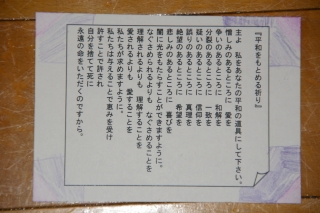 『平和をもとめる祈り』
主よ 私をあなたの平和の道具にして下さい。
憎しみのあるところに 愛を
争いのあるところに 和解を
分裂のあるところに 一致を
疑いのあるところに 信仰を
誤りのあるところに 真理を
絶望のあるところに 希望を
悲しみのあるところに 喜びを
闇に光をもたらすことができますように。
なぐさめられるよりも なぐさめることを
理解されるよりも 理解することを
愛されるよりも 愛することを
私たちが求めますように。
私たちは与えることで恵みを受け
許すことで許され
自分を捨てて死に
永遠の命をいただくのですから。